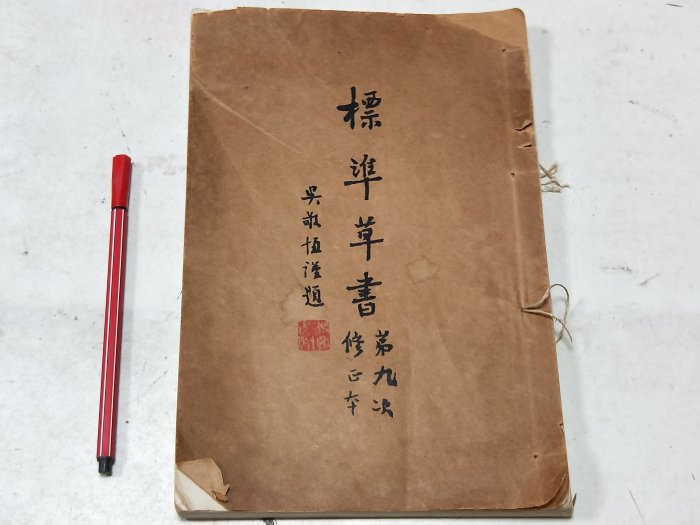 標準草書
第九次
修正本
吳敬恆謹題